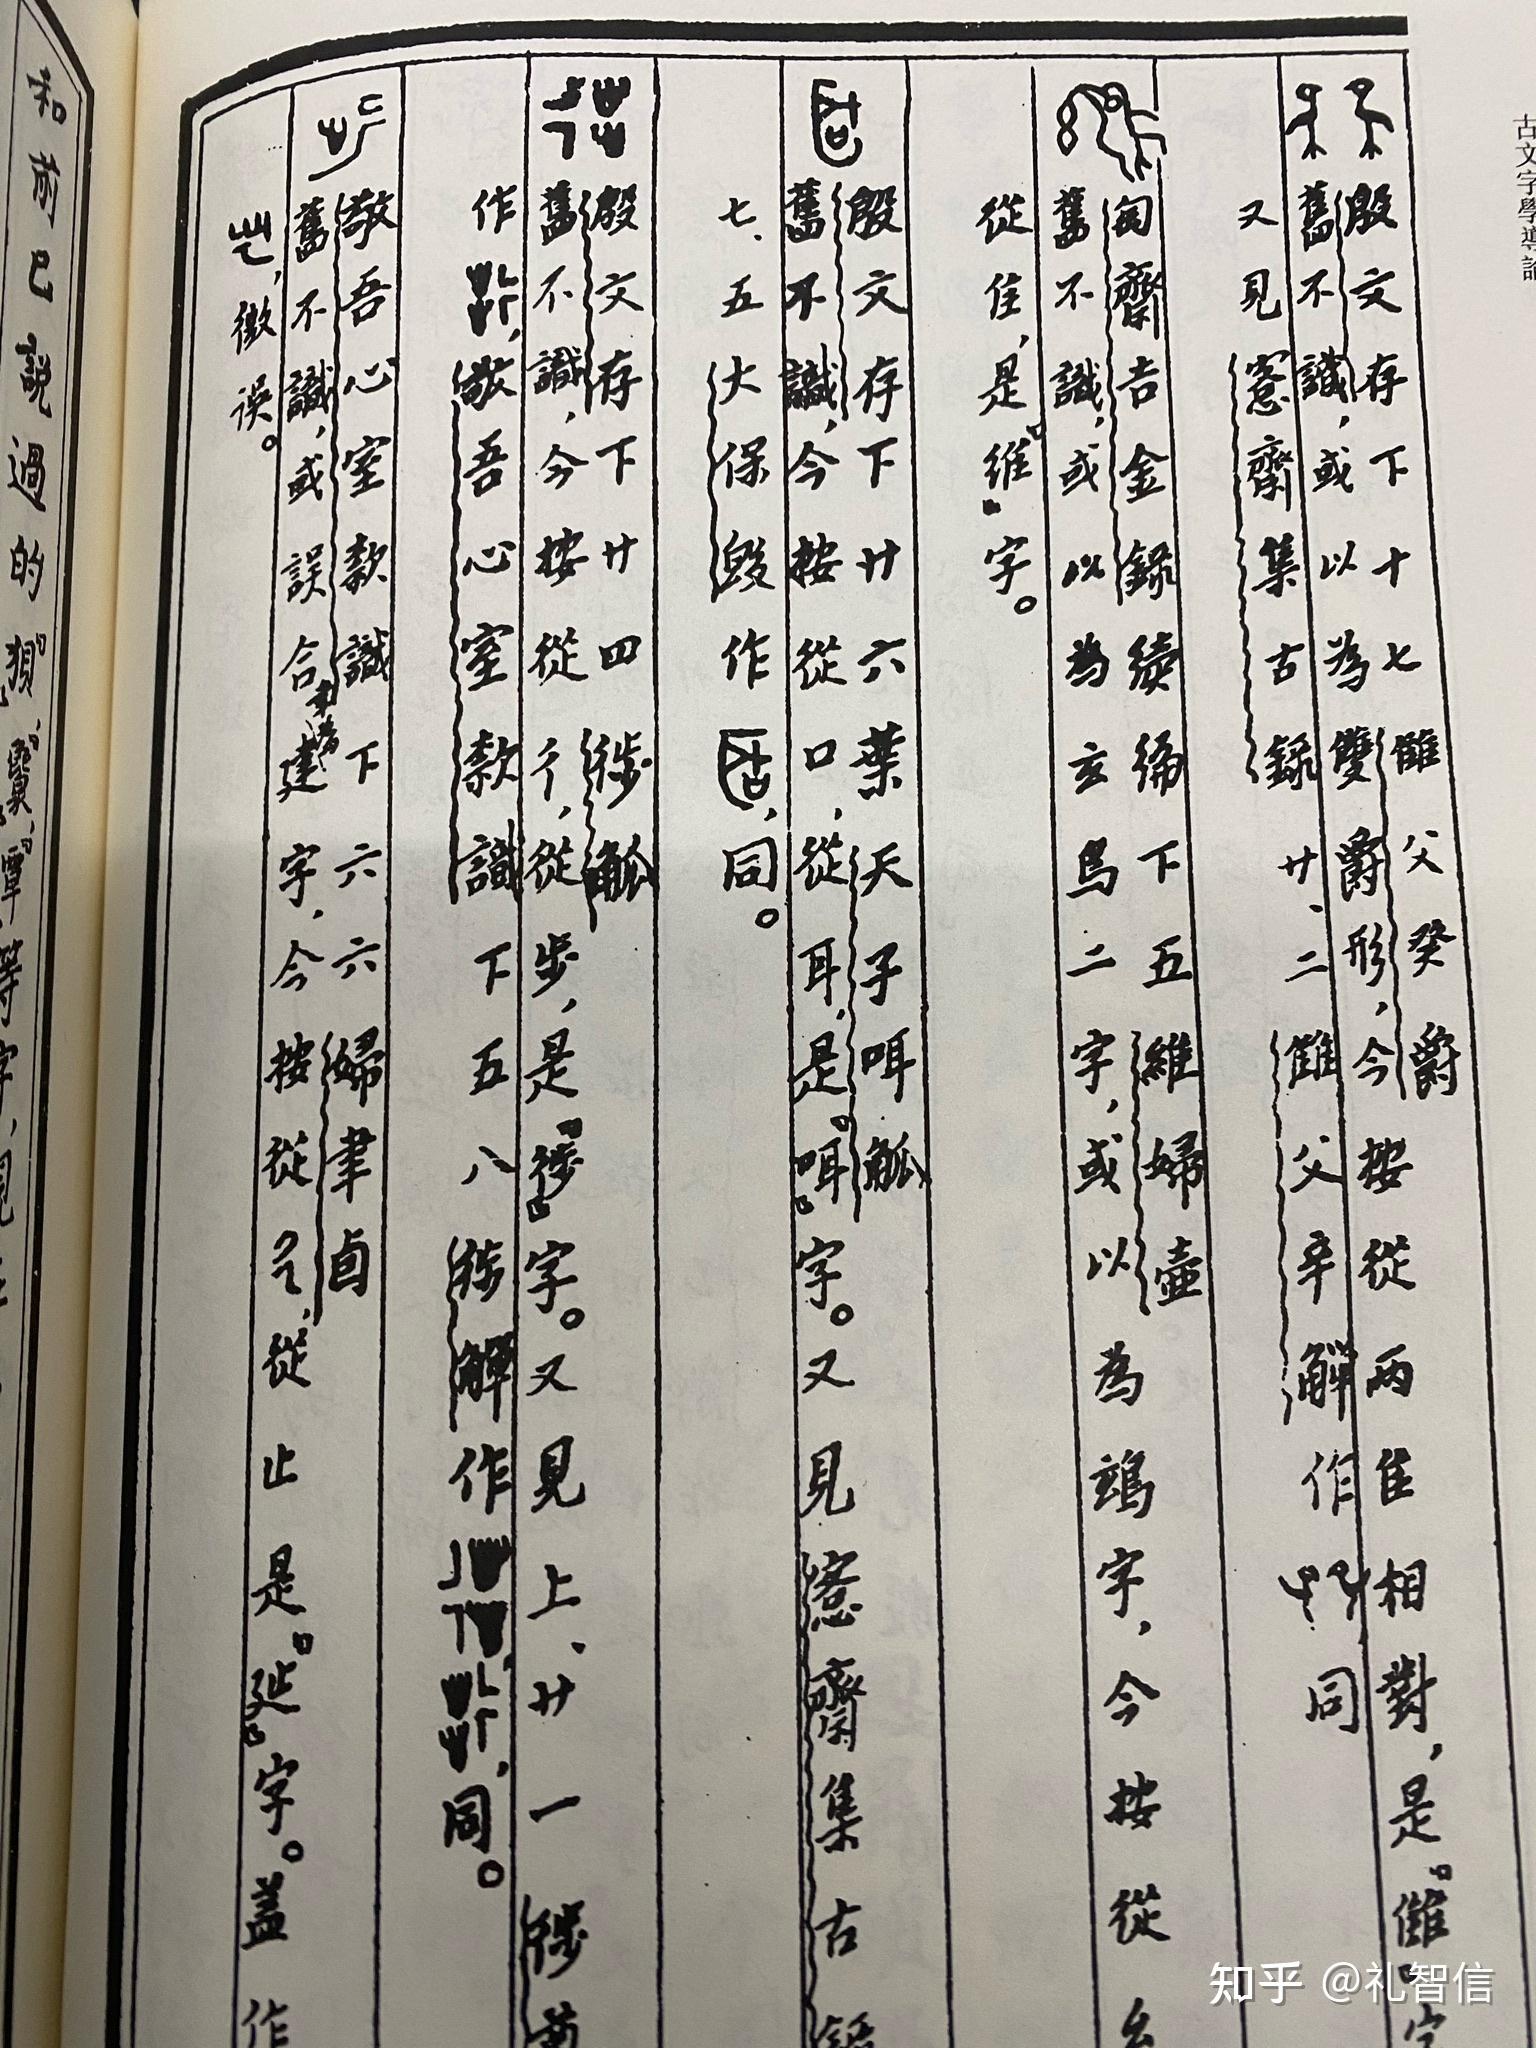 古文字學導論
殷文存下十七 雔父癸爵
舊不識，或以為雙爵形，今按從兩隹相對，是『雔』字
又見愙齋集古錄廿、二 雔父辛觶作 同
匋齋吉金錄續編下五 維婦壺
舊不識，或以為玄鳥二字，或以為鷀字，今按從
從隹，是『維』字。
殷文存下廿六葉 天子咡觚
舊不識，今按從口，從耳，是『咡』字。又見愙齋集古錄
七、五大保𣪘作 同。
殷文存下廿四 𢓊觚
舊不識，今按從彳，從步，是『𢓊』字。又見上、廿一
作 敬吾心室款識下五八 觶作 同。
敬吾心室款識下六六 婦聿卣
舊不識，或誤合聿為建字，今按從 從止是『延』字。蓋作
徵誤。
和前已說過的
等字，
知乎 @礼智信